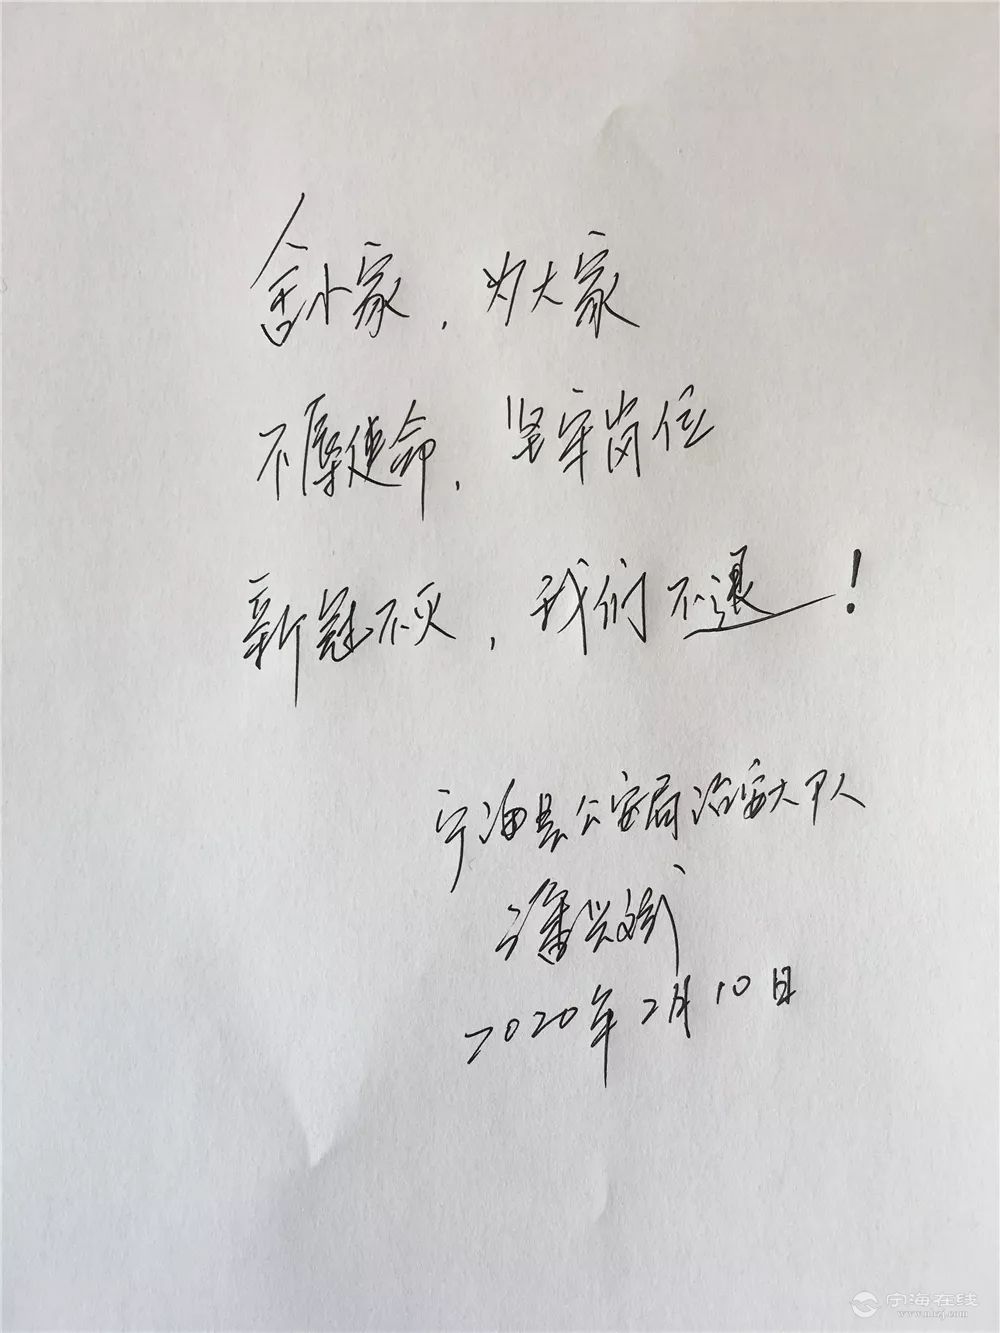 舍小家,为大家
不辱使命,坚守岗位
新冠不灭,我们不退!
宁海县公安局治安大队
潘兴斌
2020年2月10日
宁海在线
www.nhzj.com